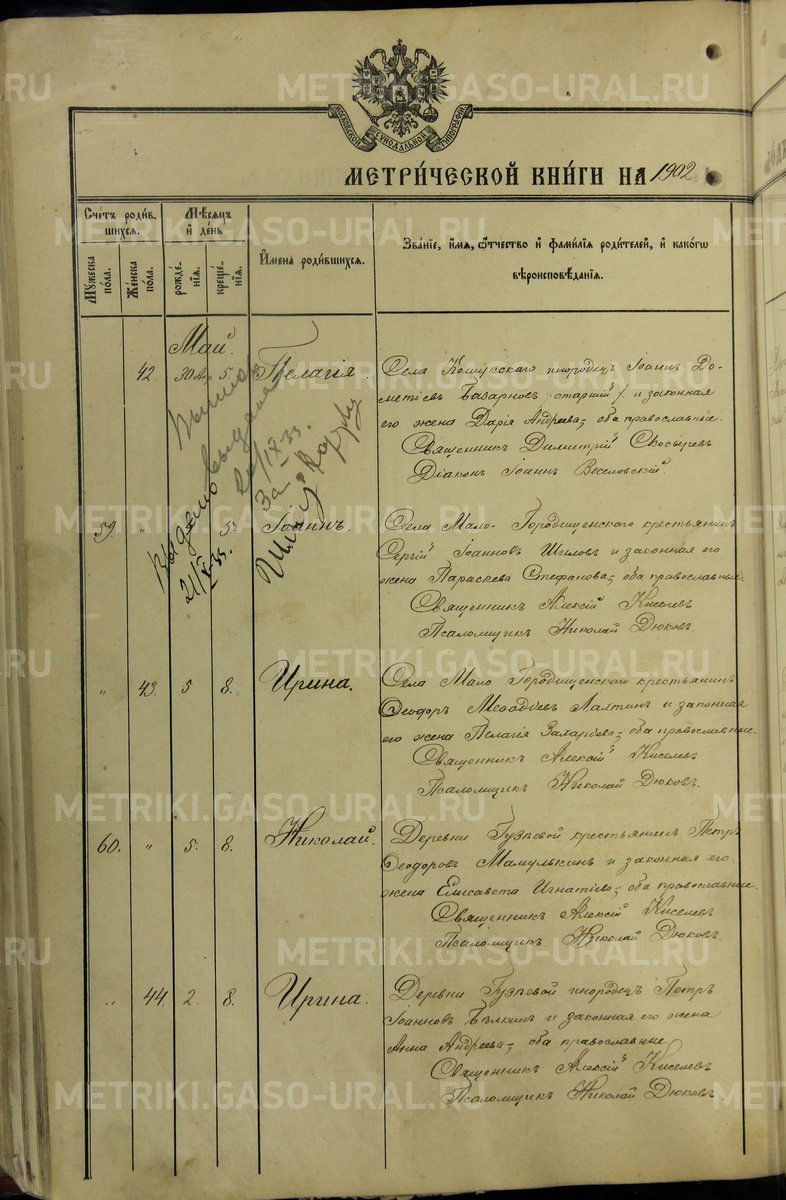 МОСКОВСКОЙ СѴНОДАЛЬНОЙ ТИПОГРАФІИ
МЕТРИ́ЧЕСКОЙ КНИ́ГИ НА 1902
Сче́тъ роди́в-
шихся.
Мѣ́сяцъ
и҆ де́нь
Мꙋ́жеска по́ла.
Же́нска по́ла.
рожде́-
нїѧ.
креще́-
нїѧ.
И҆мена̀ роди́вшихся.
Зва́нїе, и҆́мѧ, ѻ҆́тчество и҆ фами́лїѧ роди́телей, и҆ како́гѡ
вѣроисповѣ́данїѧ.
Май.
42. 30 Апр 5 Пелагія. Села Кошукскаго инородецъ Іоаннъ До-
метіевъ Базарновъ /старшій/ и законная
его жена Дарія Андреева; оба православные.
Священникъ Димитрій Скосыревъ
Діаконъ Іоаннъ Веселовскій.
21/IX-33.
За
Выдано
21/X-33.
59. " 5. Іоаннъ. Села Мало-Городищенскаго крестьянинъ
Сергій Іоанновъ Шиловъ и законная его
жена Параскева Стефанова; оба православные.
Священникъ Алексій Киселевъ
Псаломщикъ Николай Дюковъ.
" 43. 5 8. Ирина. Села Мало Городищенскаго крестьянинъ
Ѳеодоръ Меѳодіевъ Лаптинъ и законная
его жена Пелагія Захарьева; оба православные.
Священникъ Алексій Киселевъ
Псаломщикъ Николай Дюковъ.
60. " 5. 8. Николай. Деревни Гузѣевой крестьянинъ Петръ
Ѳеодоровъ Мамулькинъ и законная его
жена Елисавета Игнатіева; оба православные.
Священникъ Алексій Киселевъ
Псаломщикъ Николай Дюковъ.
" 44. 2. 8. Ирина. Деревни Гузѣевой инородецъ Петръ
Іоанновъ Бѣлкинъ и законная его жена
Анна Андреева; оба православные.
Священникъ Алексій Киселевъ
Псаломщикъ Николай Дюковъ.
METRIKI.GASO-URAL.RU